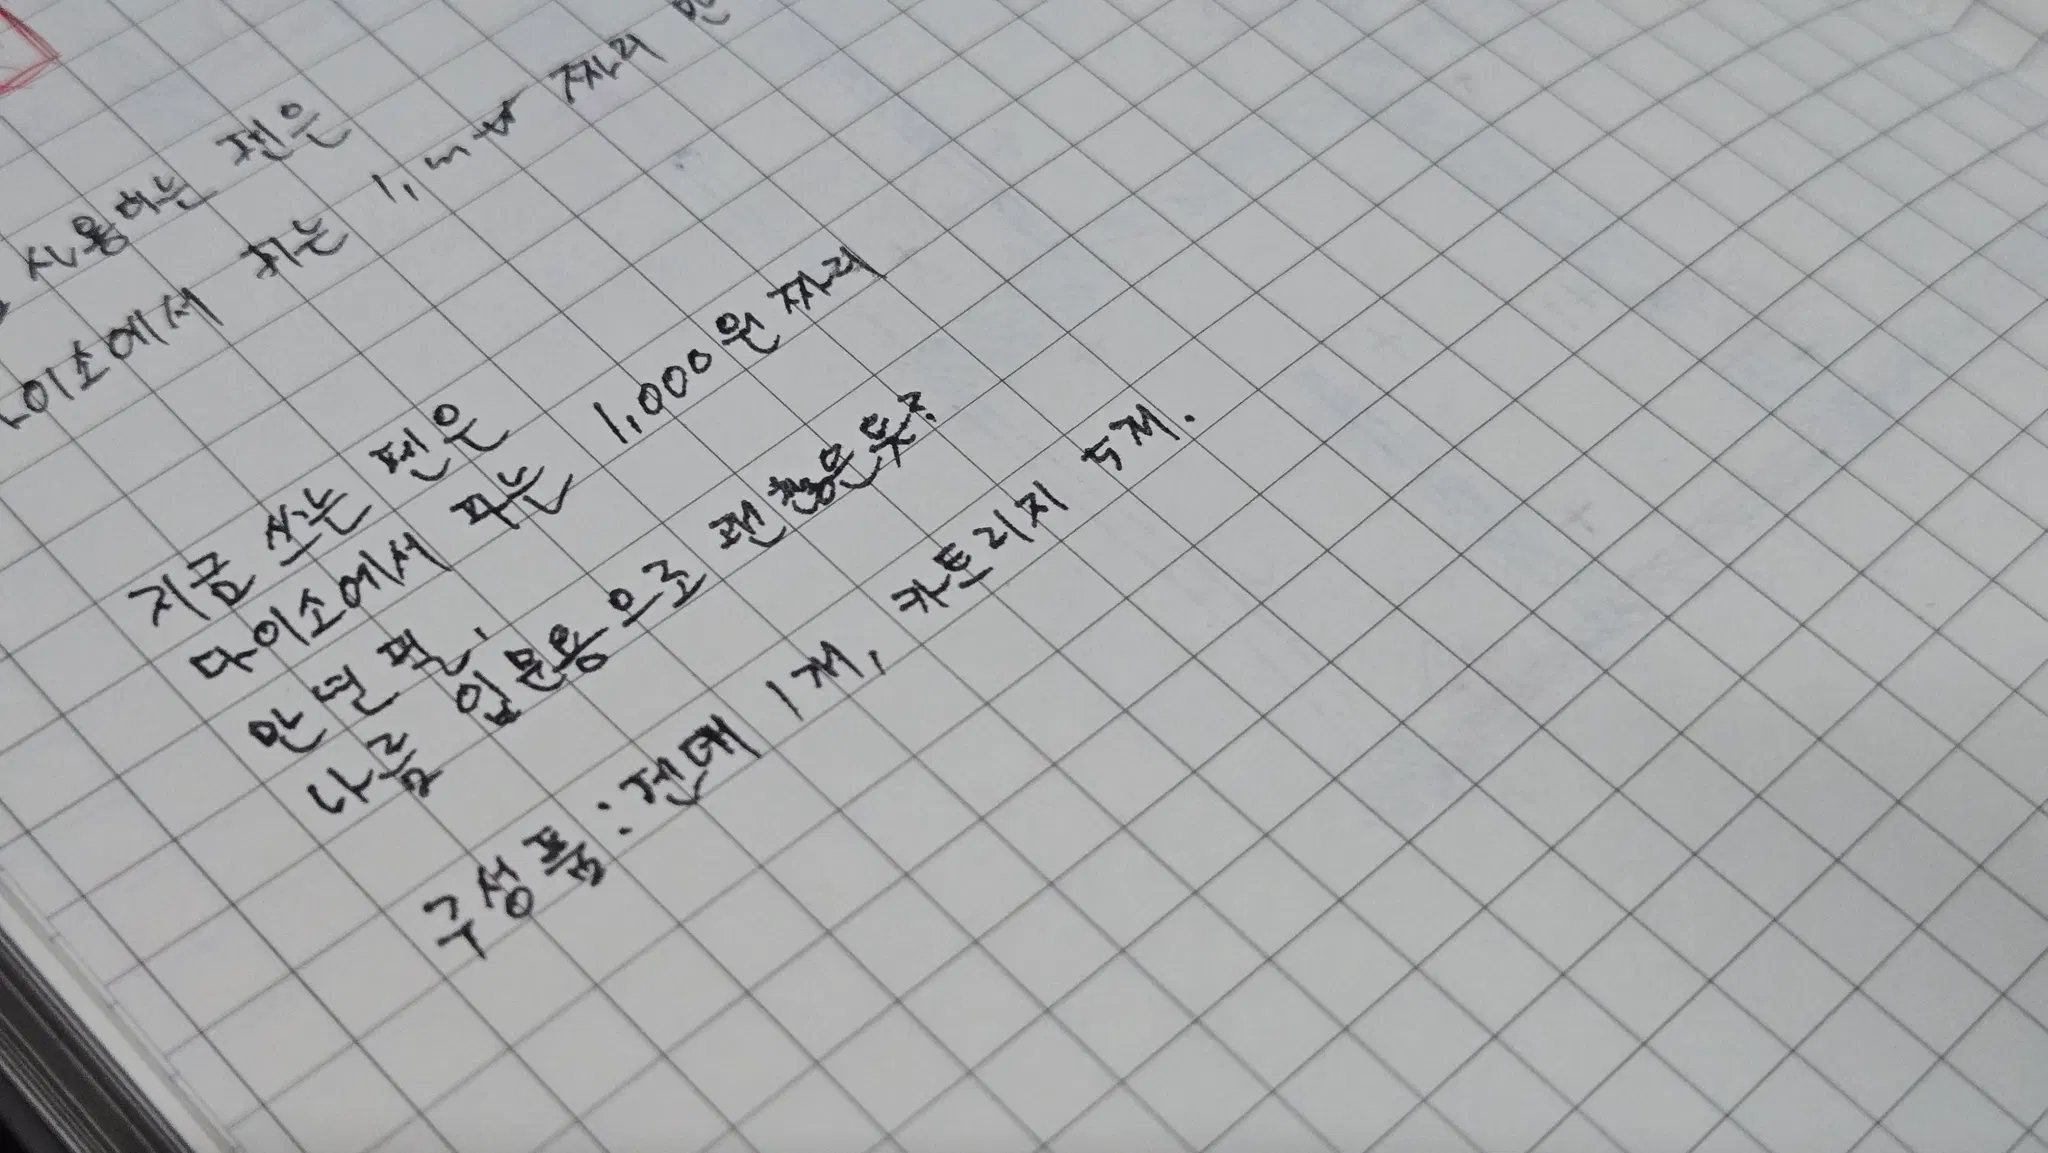 사용하는 펜은
이소에서 파는 1,000 짜리 만
지금 쓰는 펜은
다이소에서 파는 1,000원 짜리
만년필.
나름 입문용으로 괜찮은듯?
구성품 : 펜대 1개, 카트리지 5개.